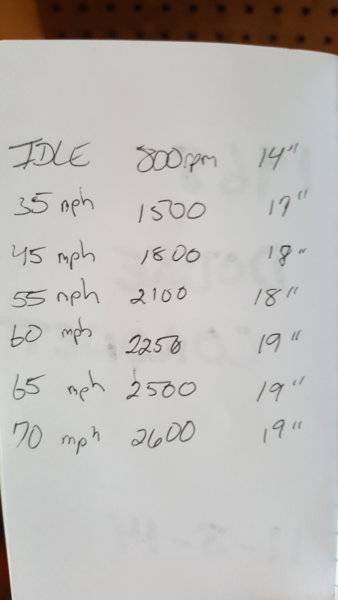 IDLE 800rpm 14"
35 mph 1500 17"
45 mph 1800 18"
55 mph 2100 18"
60 mph 2250 19"
65 mph 2500 19"
70 mph 2600 19"